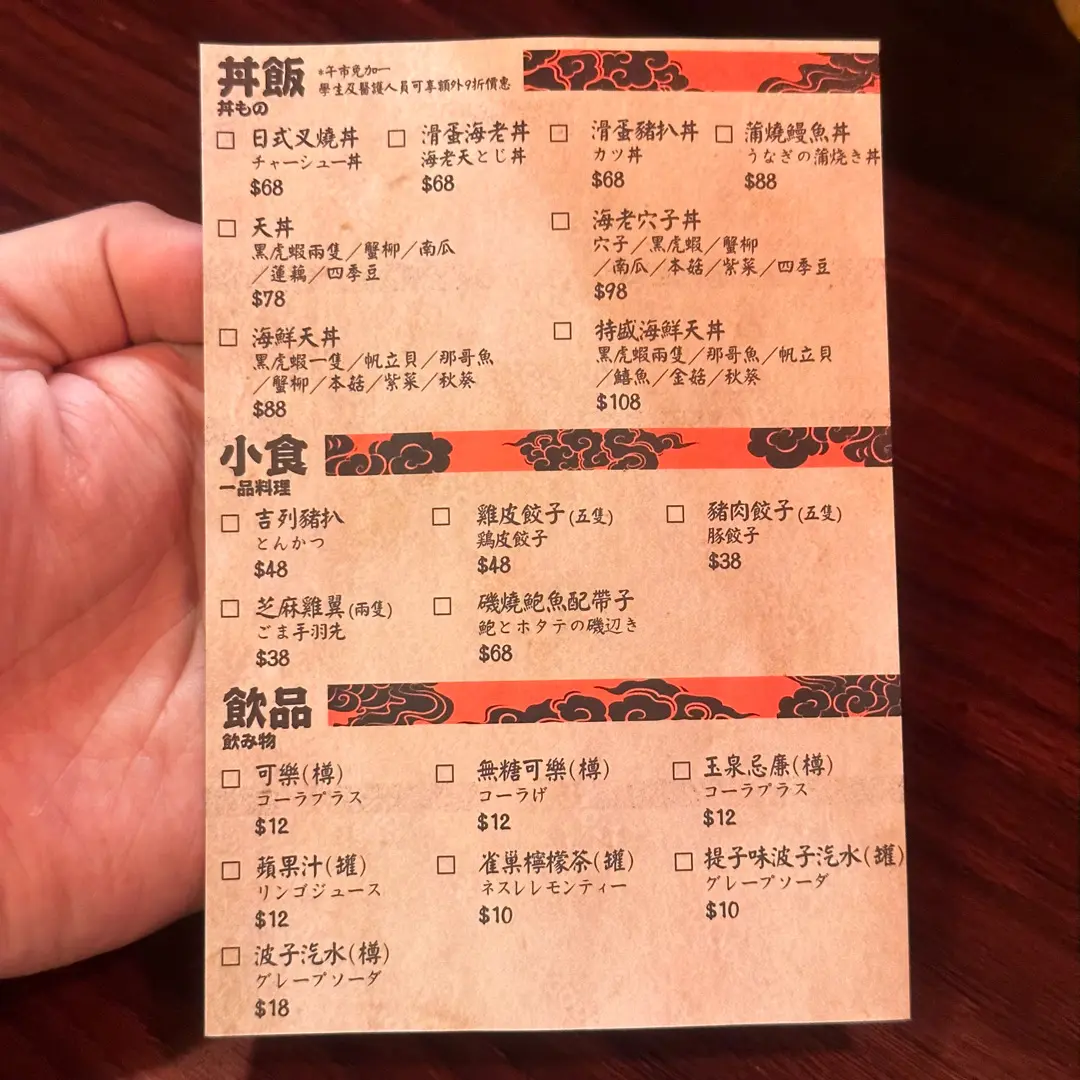 丼飯
*午市免加一
學生及醫護人員可享額外9折價惠
丼もの
日式叉燒丼
チャーシュー丼
$68
滑蛋海老丼
海老天とじ丼
$68
滑蛋豬扒丼
カツ丼
$68
蒲燒鰻魚丼
うなぎの蒲焼き丼
$88
天丼
黑虎蝦兩隻／蟹柳／南瓜
／蓮藕／四季豆
$78
海老穴子丼
穴子／黑虎蝦／蟹柳
／南瓜／本菇／紫菜／四季豆
$98
海鮮天丼
黑虎蝦一隻／帆立貝／那哥魚
／蟹柳／本菇／紫菜／秋葵
$88
特盛海鮮天丼
黑虎蝦兩隻／那哥魚／帆立貝
／鱚魚／金菇／秋葵
$108
小食
一品料理
吉列豬扒
とんかつ
$48
雞皮餃子(五隻)
鶏皮餃子
$48
豬肉餃子(五隻)
豚餃子
$38
芝麻雞翼(兩隻)
ごま手羽先
$38
磯燒鮑魚配帶子
鮑とホタテの磯辺き
$68
飲品
飲み物
可樂(樽)
コーラプラス
$12
無糖可樂(樽)
コーラげ
$12
玉泉忌廉(樽)
コーラプラス
$12
蘋果汁(罐)
リンゴジュース
$12
雀巢檸檬茶(罐)
ネスレレモンティー
$10
提子味波子汽水(罐)
グレープソーダ
$10
波子汽水(樽)
グレープソーダ
$18